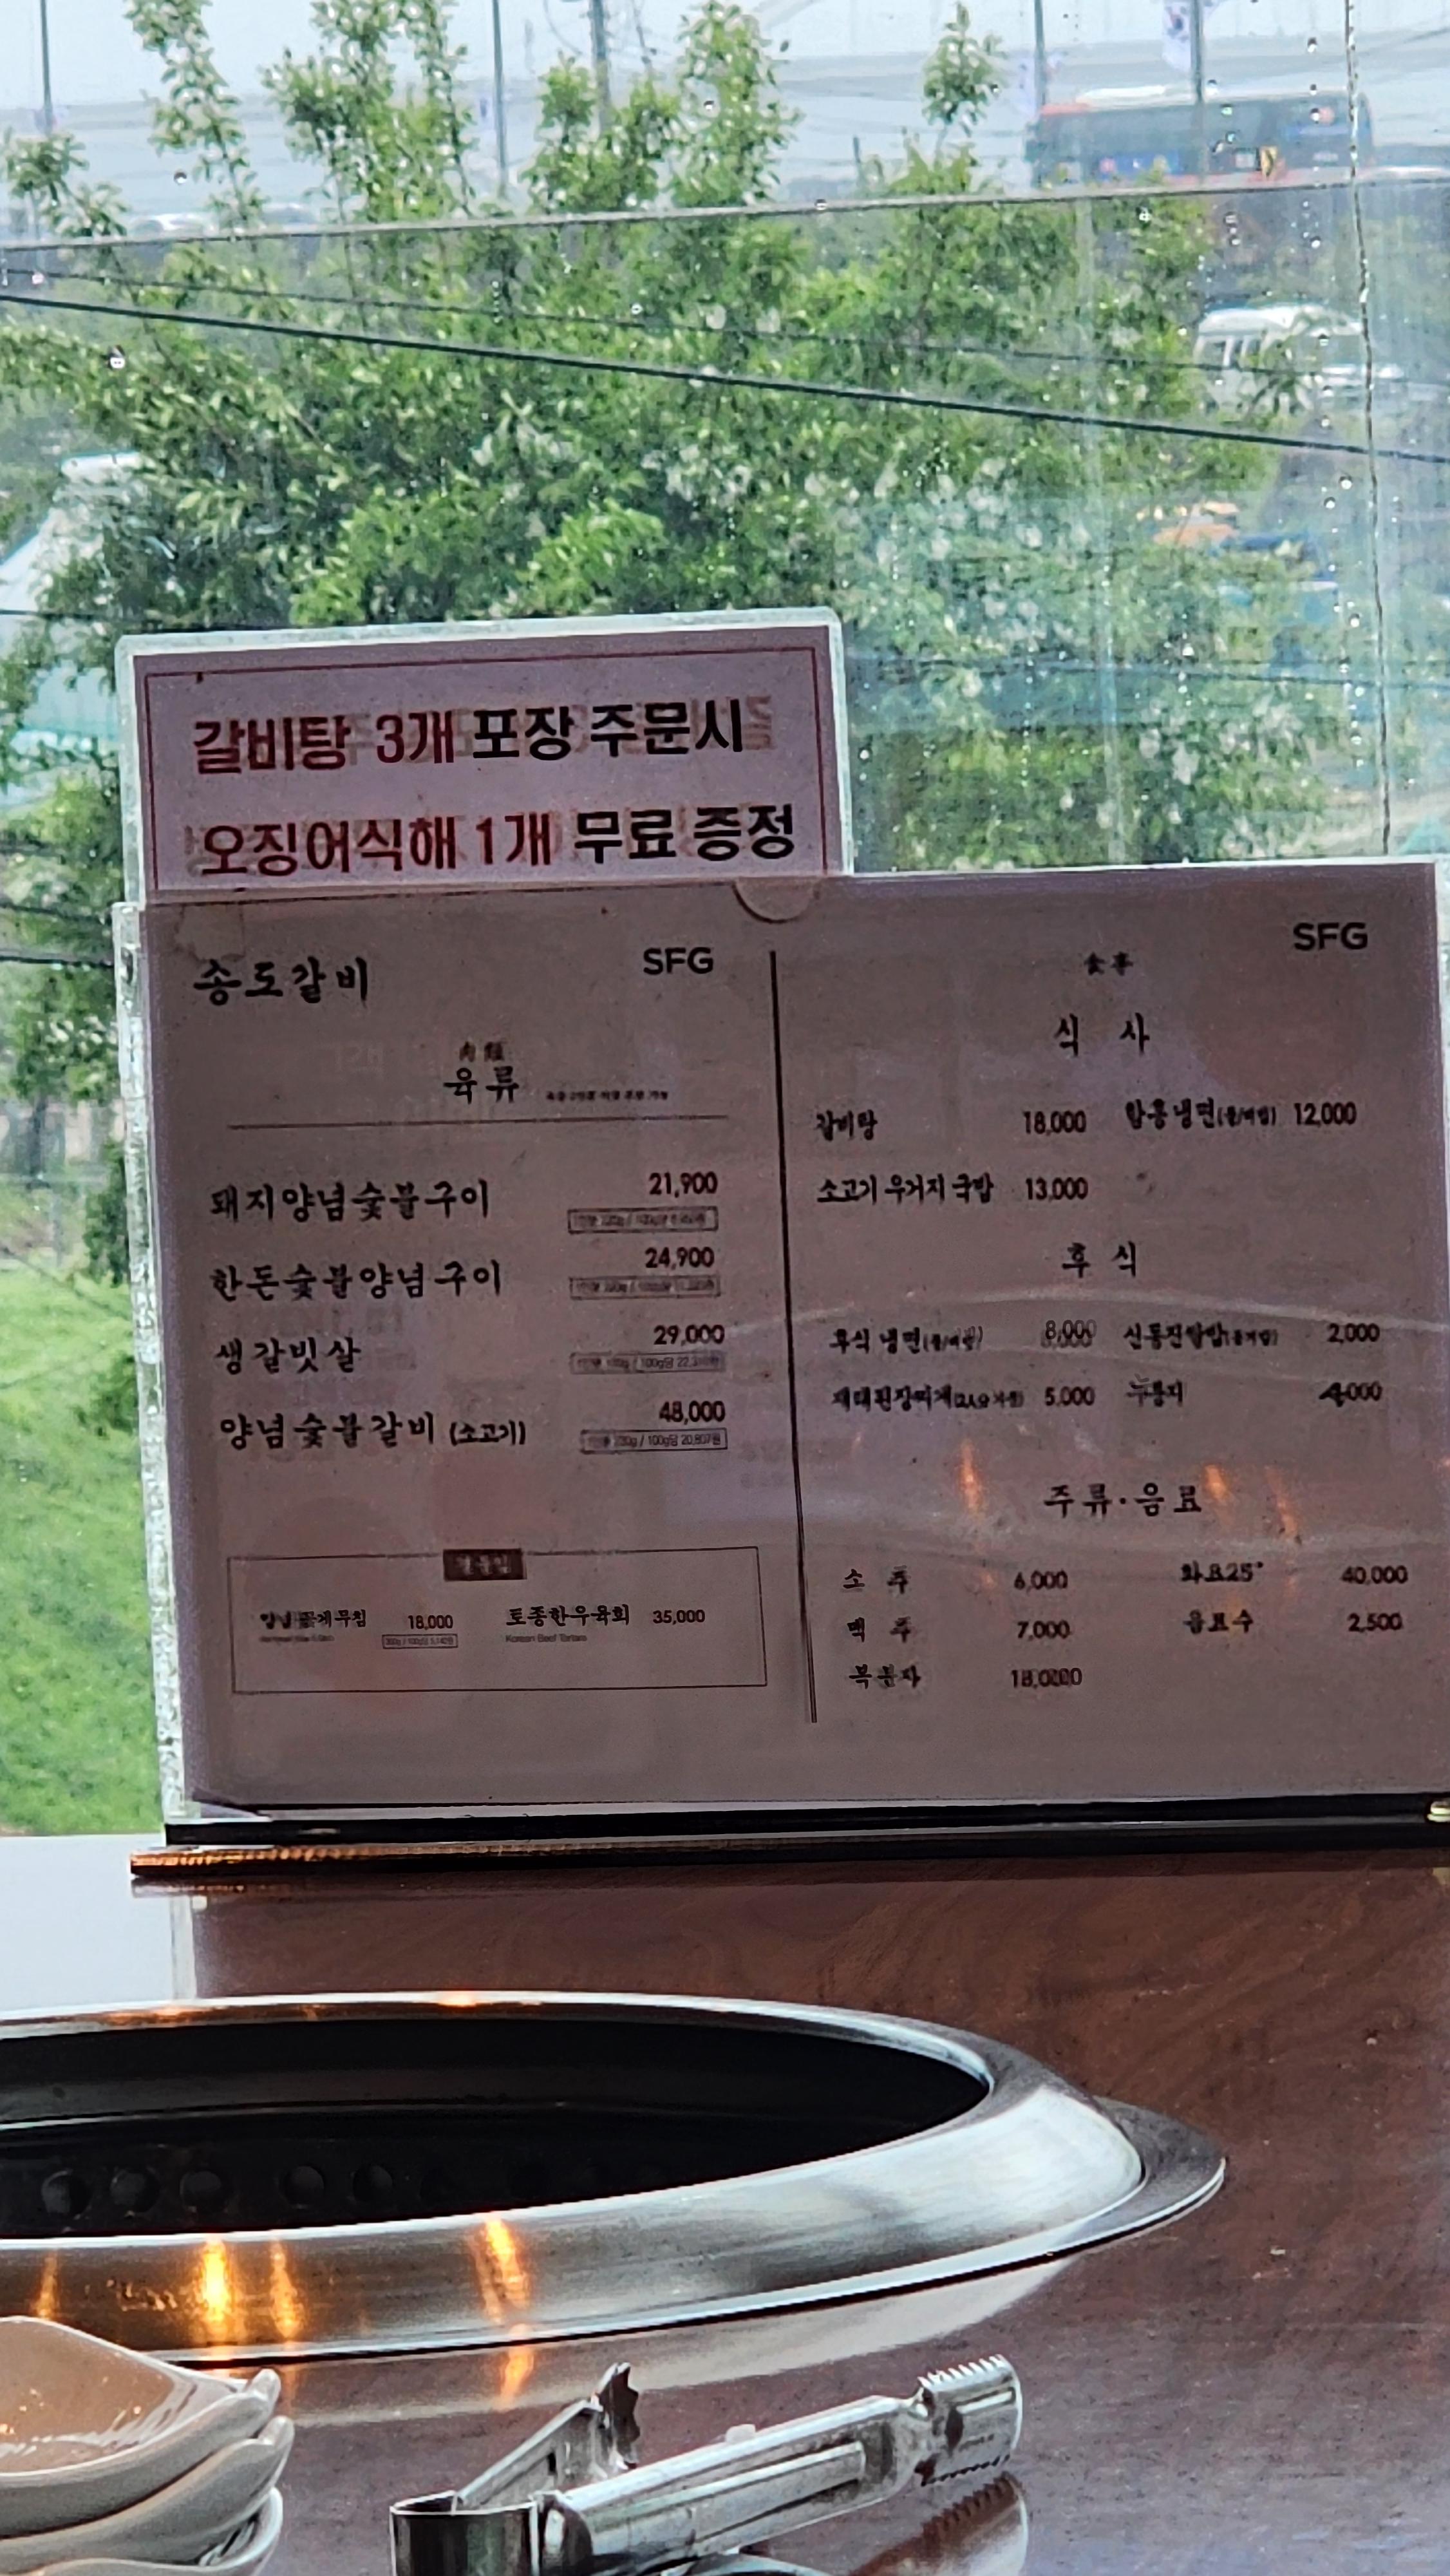 갈비탕 3개 포장 주문시
오징어식해 1개 무료 증정
송도갈비 SFG
肉類
육류
돼지양념숯불구이 21,900
한돈숯불양념구이 24,900
생갈빗살 29,000
양념숯불갈비 (소고기) 48,000
100g당 20,807원
양념꽃게무침 18,000 토종한우육회 35,000
Korean Beef Tartare
SFG
食事
식 사
갈비탕 18,000 함흥냉면(물/비빔) 12,000
소고기 우거지 국밥 13,000
후 식
후식 냉면(물/비빔) 8,000 2,000
5,000 누룽지 4,000
주류·음료
소 주 6,000 화요25° 40,000
맥 주 7,000 음료수 2,500
복분자